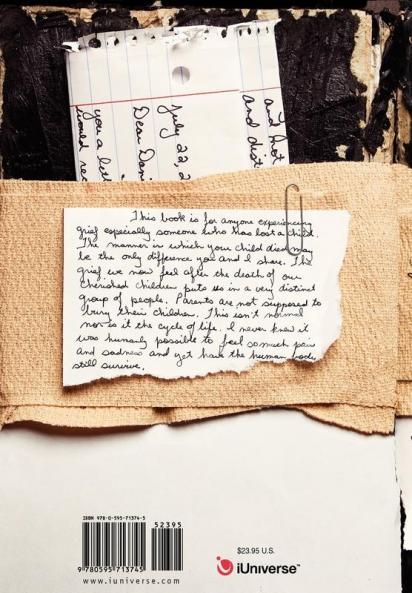 and not
and dist
July 22, 2
Dear Dani
you a lett
would rec
This book is for anyone experiencing
grief especially someone who has lost a child.
The manner in which your child died may
be the only difference you and I share. The
grief we now feel after the death of our
cherished children puts us in a very distinct
group of people. Parents are not supposed to
bury their children. This isn't normal
nor is it the cycle of life. I never knew it
was humanly possible to feel so much pain
and sadness and yet have the human body
still survive.
ISBN 978-0-595-71374-5
52395
9 780595 713745
www.iuniverse.com
$23.95 U.S.
iUniverse™